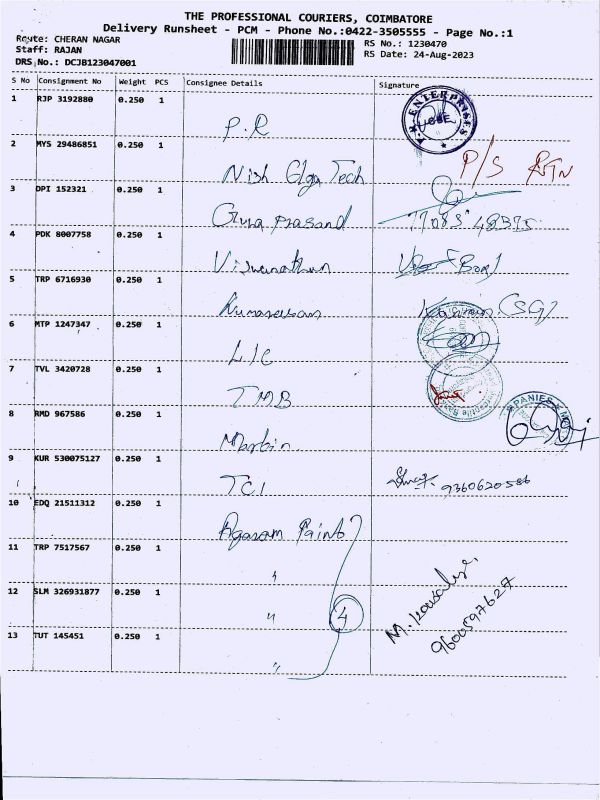 THE PROFESSIONAL COURIERS, COIMBATORE
Delivery Runsheet - PCM - Phone No.:0422-3505555 - Page No.:1
Route: CHERAN NAGAR
RS No.: 1230470
Staff: RAJAN
RS Date: 24-Aug-2023
DRS No.: DCJB123047001
S No Consignment No Weight PCS Consignee Details Signature
1 RJP 3192880 0.250 1
P.R
ENTERPRISES
2 MYS 29486851 0.250 1
P/S RTN
Nish Tech
3 DPI 152321 0.250 1
Guru prasand 77085 48375
4 PDK 8007758 0.250 1
Viswanathan
5 TRP 6716930 0.250 1
Kumaresan
6 MTP 1247347 0.250 1
LIC
7 TVL 3420728 0.250 1
TMB
8 RMD 967586 0.250 1
Martin
9 KUR 530075127 0.250 1
TCI 9360620586
10 EDQ 21511312 0.250 1
Agasam Paints
11 TRP 7517567 0.250 1
"
12 SLM 326931877 0.250 1
" 4
M. Kousalya.
9600597627
13 TUT 145451 0.250 1
"